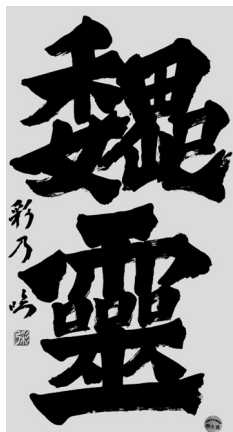 魏靈
彩乃